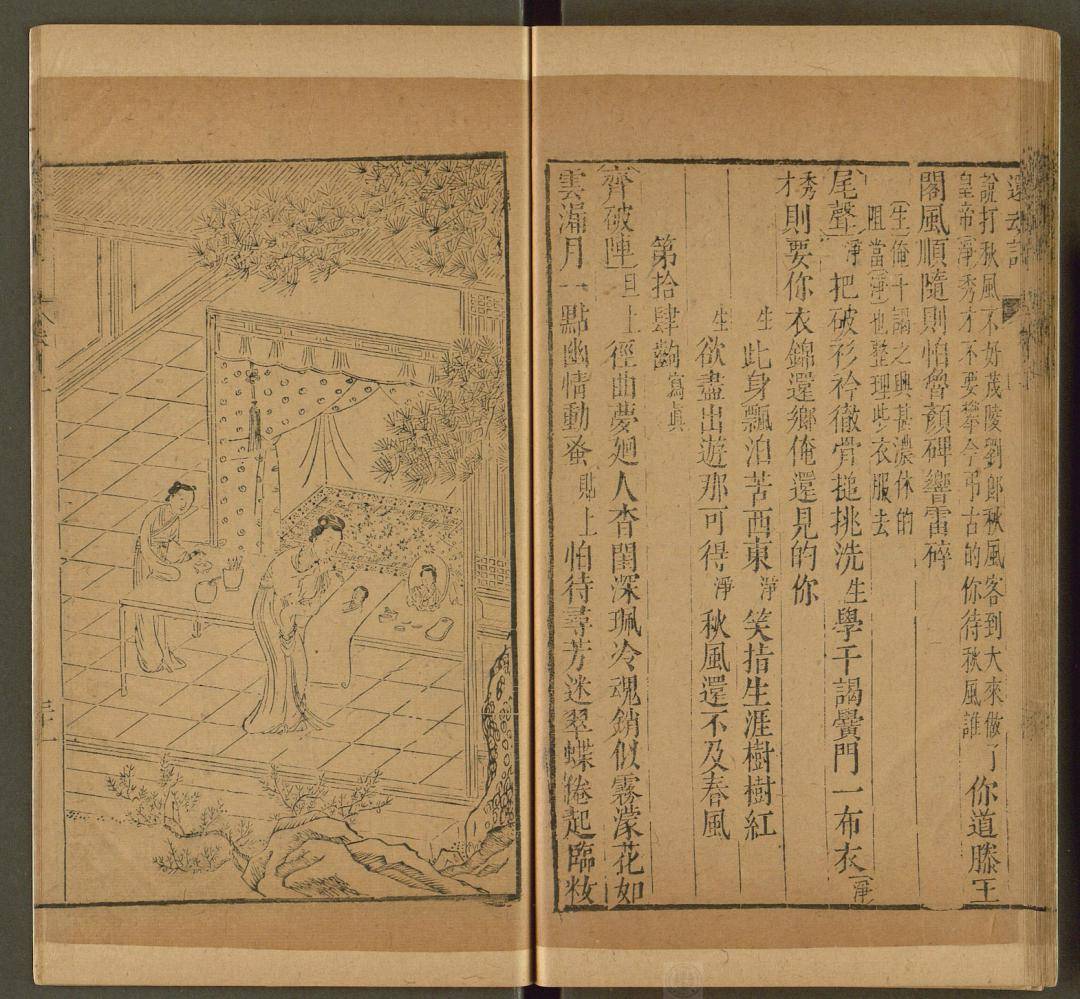 還云記
說打秋風不好茂陵劉郎秋風客到大來做了
皇帝淨秀才不要攀今弔古的你待秋風誰
你道滕王
閣風順隨則怕魯顏碑響雷碎
生俺干謁之興甚濃休的
阻當淨也整理些衣服去
尾聲淨把破衫衿徹骨搥挑洗生學干謁黌門一布衣淨
秀才則要你衣錦還鄉俺還見的你
生此身飄泊苦西東淨笑指生涯樹樹紅
生欲盡出遊那可得淨秋風還不及春風
第拾肆齣寫真
齊破陣旦上徑曲夢廻人杳閨深珮冷魂銷似霧濛花如
雲漏月一點幽情動蚤貼上怕待尋芳迷翠蝶倦起臨妝